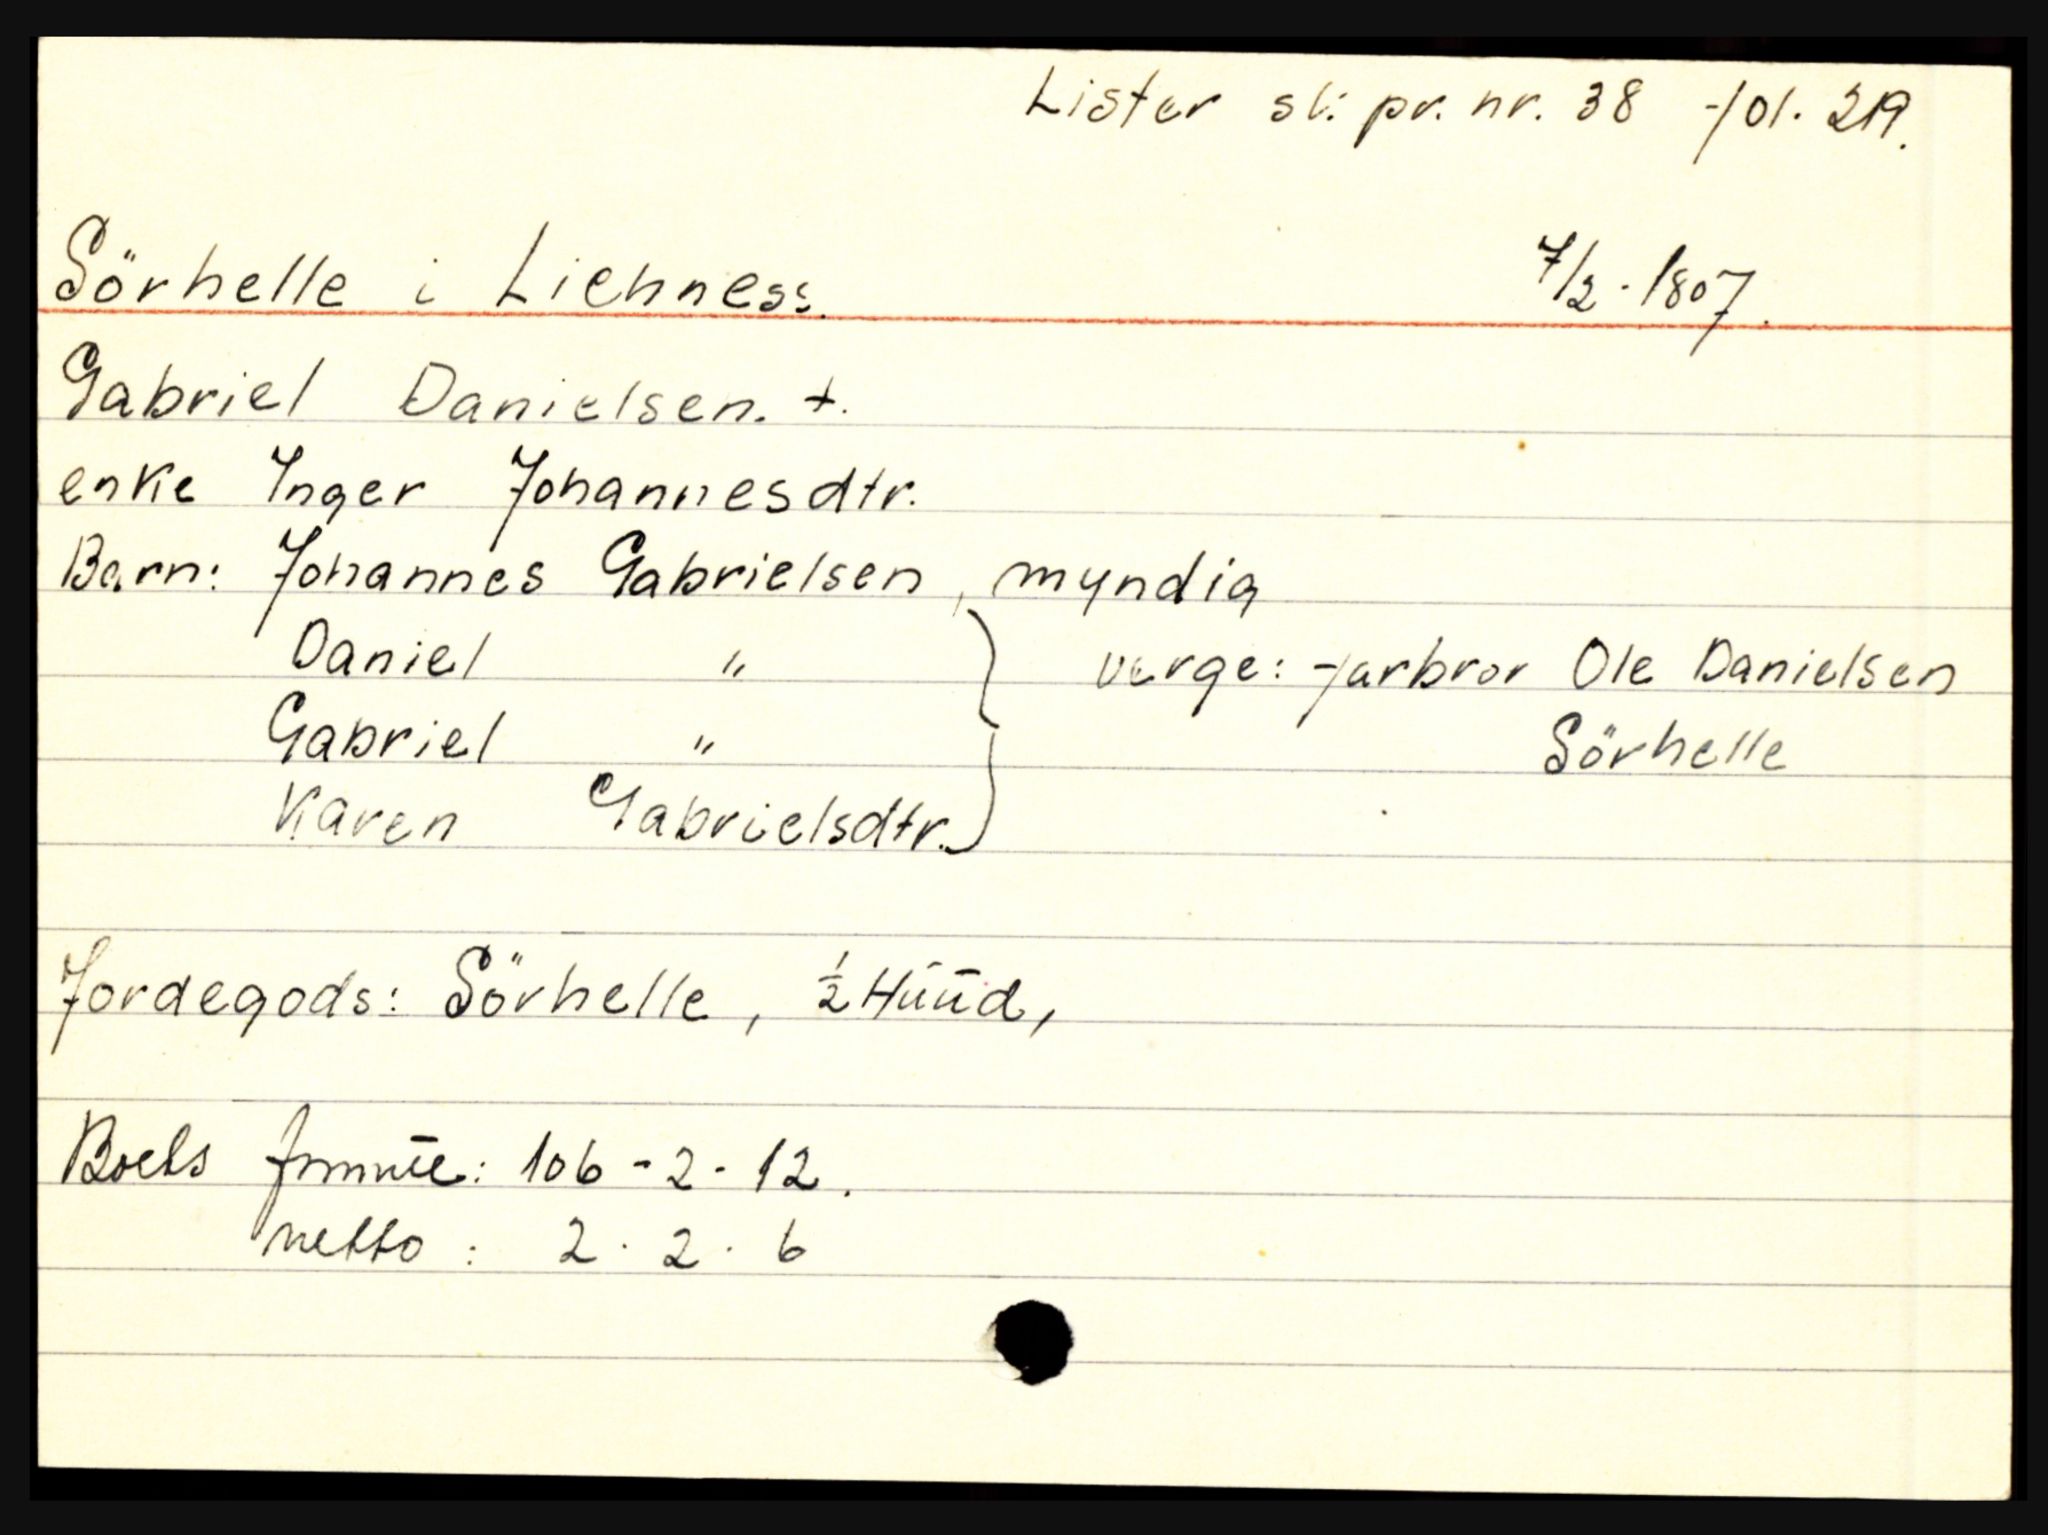 Lister sk. pr. nr. 38 fol. 219.
Sörhelle i Liehness. 7/2 - 1807.
Gabriel Danielsen. +.
enke Inger Johannesdtr.
Barn: Johannes Gabrielsen, myndig
Daniel " verge: farbror Ole Danielsen
Gabriel " Sörhelle
Karen Gabrielsdtr.
Jordegods: Sörhelle, ½ Huud,
Boets : 106 - 2 - 12.
netto : 2 - 2 - 6